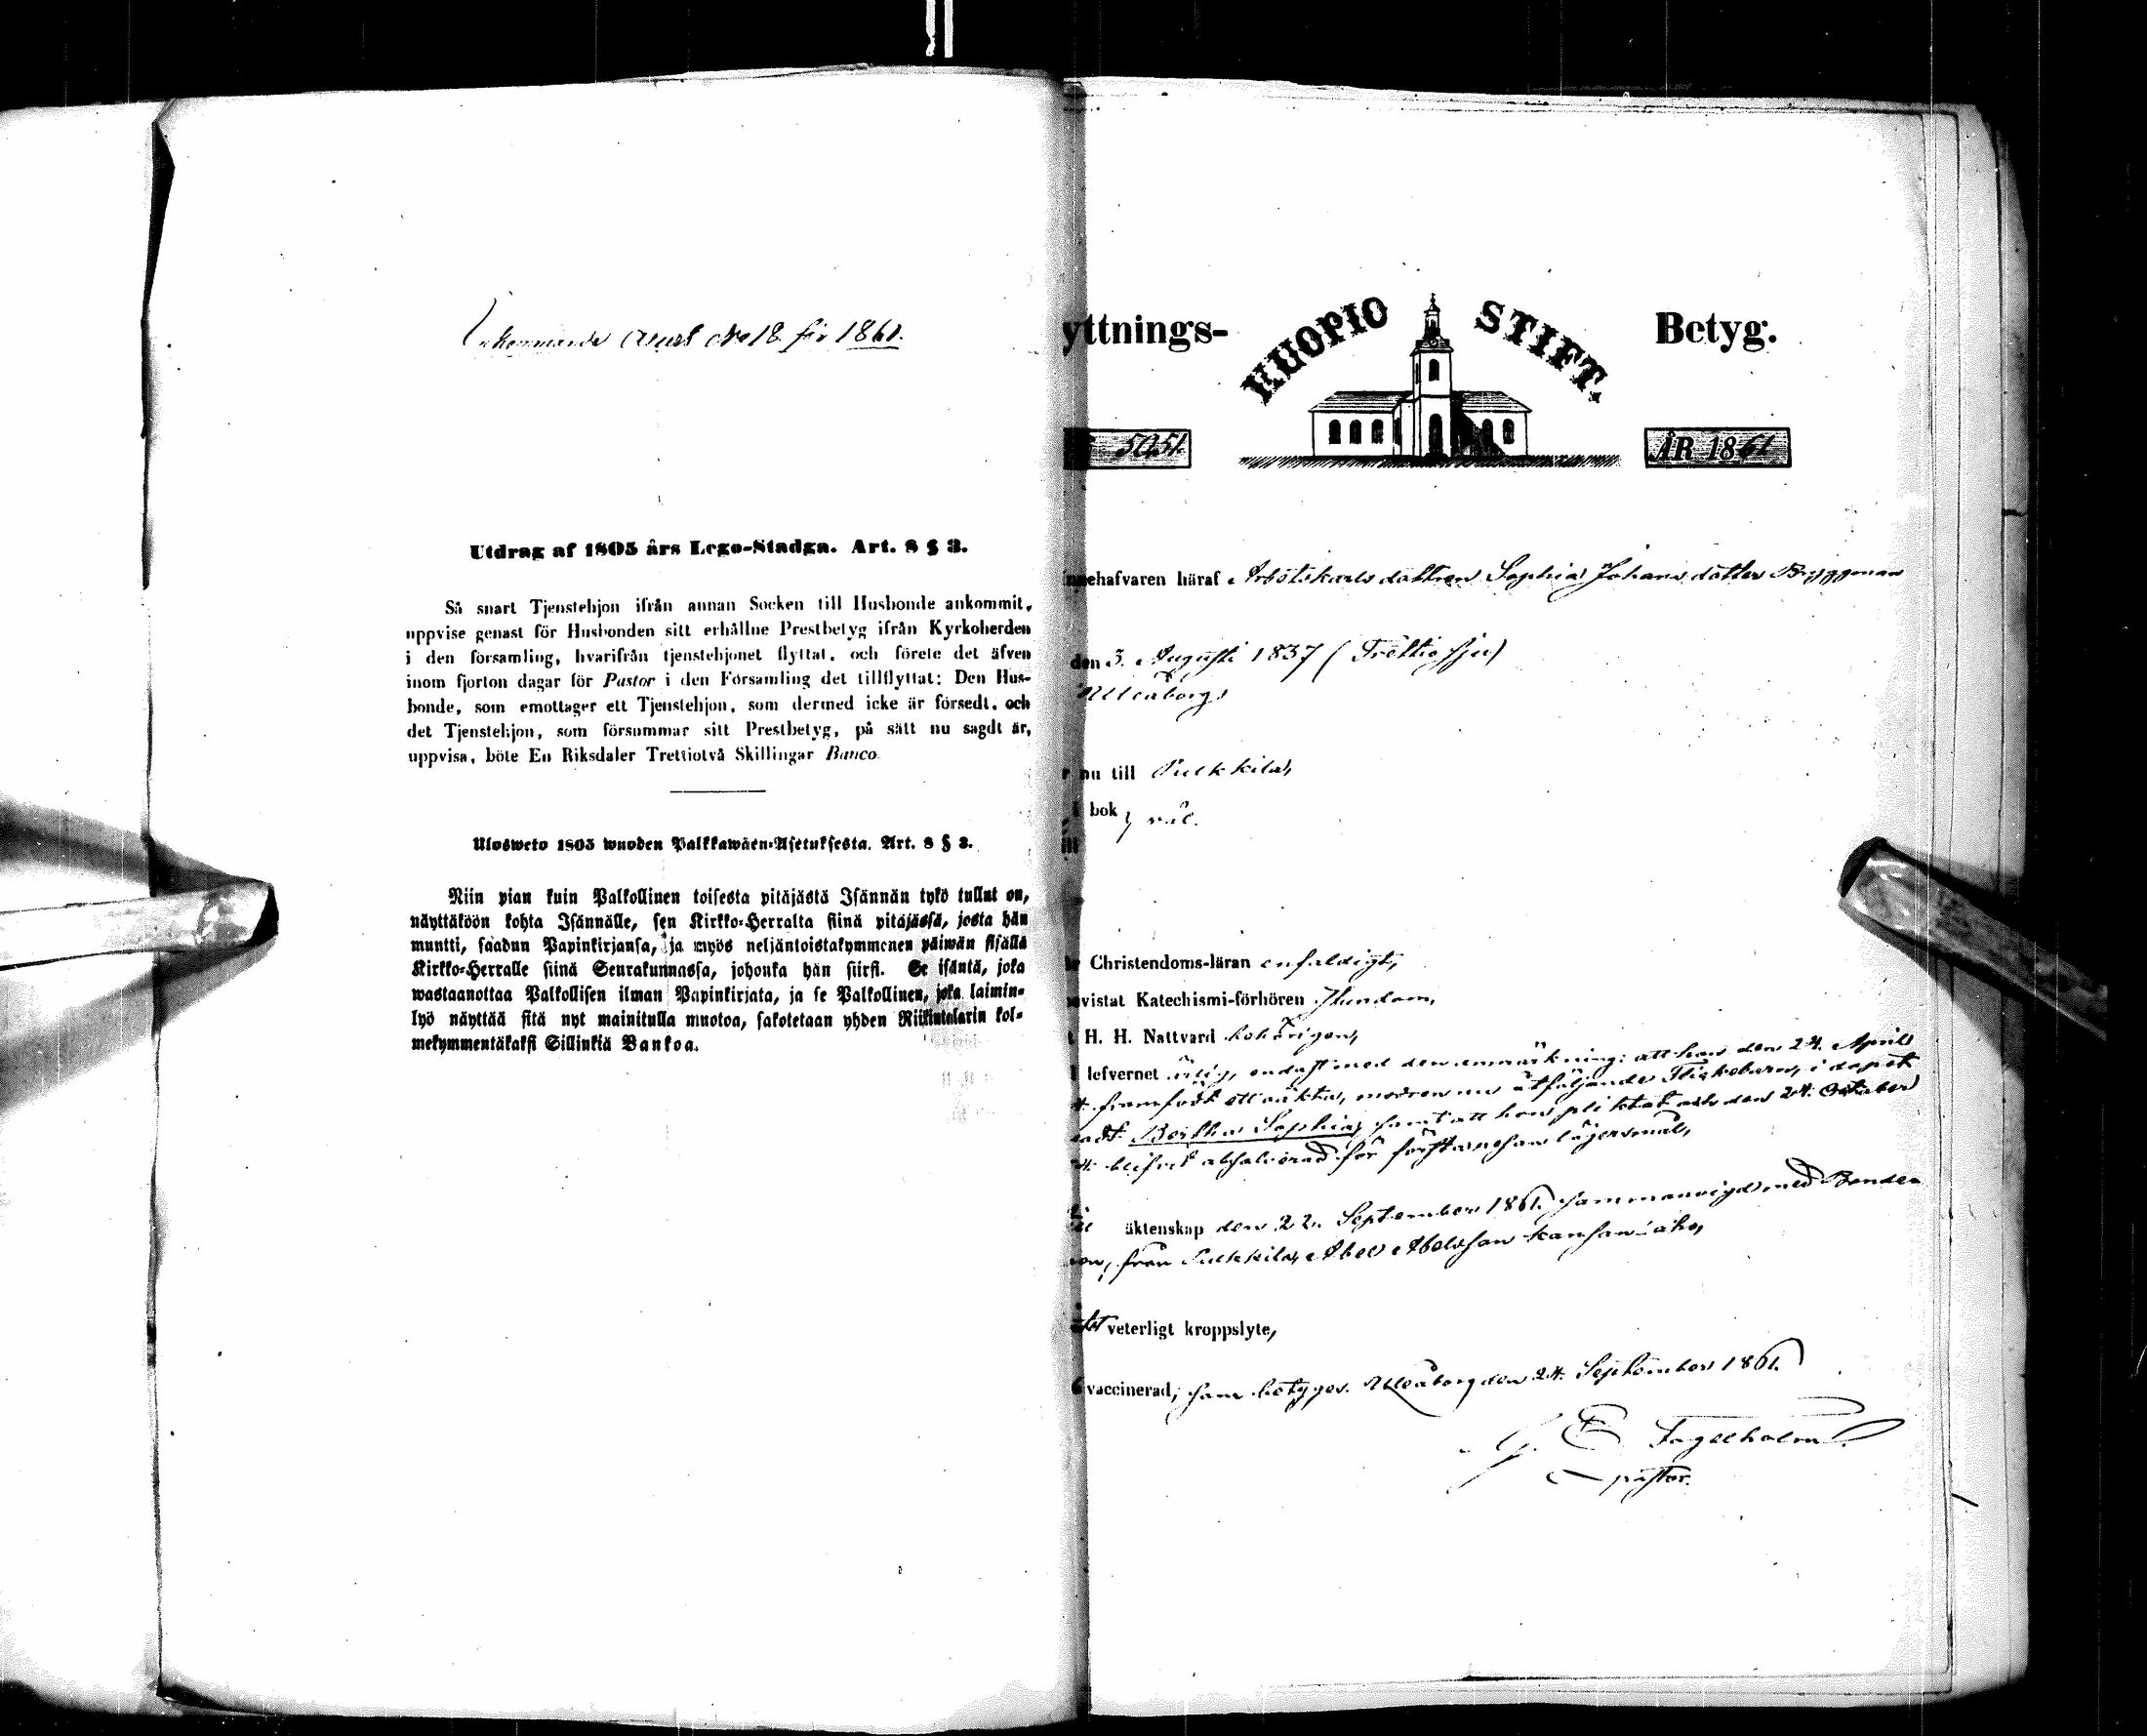 Inkommande Attest No 18 för 1861.
Utdrag af 1805 års Lego-Stadga. Art. 8 § 3.
Så snart Tjenstehjon ifrån annan Socken till Husbonde ankommit,
uppvise genast för Husbonden sitt erhållne Prestbetyg ifrån Kyrkoherden
i den församling, hvarifrån tjenstehjonet flyttat, och förete det äfven
inom fjorton dagar för Pastor i den Församling det tillflyttat: Den Hus-
bonde, som emottager ett Tjenstehjon, som dermed icke är försedt, och
det Tjenstehjon, som försummar sitt Prestbetyg, på sätt nu sagdt är,
uppvisa, böte En Riksdaler Trettiotvå Skillingar Banco.
Ulosweto 1805 wuoden Palkkawäen-Asetuksesta. Art. 8 § 3.
Niin pian kuin Palkollinen toisesta pitäjästä Isännän tykö tullut on,
näyttäköön kohta Isännälle, sen Kirkko-Herralta siinä pitäjässä, josta hän
muutti, saadun Papinkirjansa, ja myös neljäntoistakymmenen päiwän sisällä
Kirkko-Herralle siinä Seurakunnassa, johonka hän siirsi. Se isäntä, joka
wastaanottaa Palkollisen ilman Papinkirjata, ja se Palkollinen, joka laimin-
lyö näyttää sitä nyt mainitulla muotoa, sakotetaan yhden Riikintalarin kol-
mekymmentäkaksi Sillinkiä Bankoa.
yttnings- KUOPIO STIFT. Betyg.
5051. ÅR 1861
nnehafvaren häraf Arbetskarls dottren Sophia Johans dotter Bryggman
den 3. Augusti 1837 (Trettio sju)
Uleåborg
nu till Pulkkila,
bok } väl.
Christendoms-läran enfaldigt,
vistat Katechismi-förhören stundom,
H. H. Nattvard behörigen,
lefvernet ärlig, endast med den anmärkning: att hon den 24. April
framfödt ett oäkta, modren nu åtföljande Flickebarn, i dopet
Bertha Sophia, samt att hon pliktat och den 24. October
blifvit absolverad för första resan lägersmål,
äktenskap den 22. September 1861. sammanvigd med Bonde
från Pulkkila, Abel Abelsson Kansan-aho,
veterligt kroppslyte,
vaccinerad, som betygas. Uleåborg den 24. September 1861.
G. E. Fogelholm.
pastor.